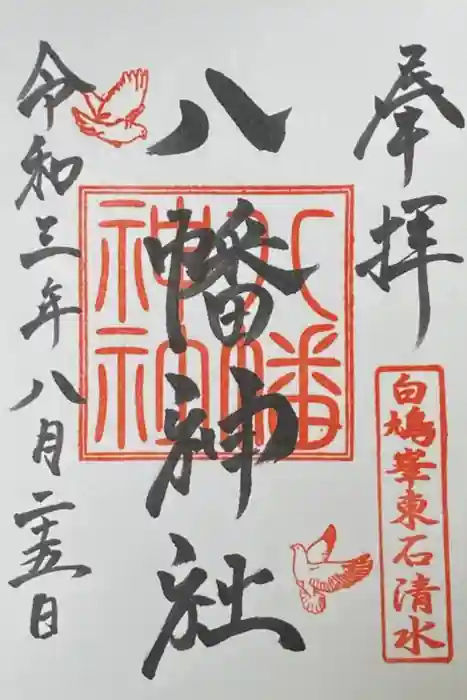 奉拝
白鳩峯東石清水
八幡神社
八幡
神社
令和三年八月二十五日